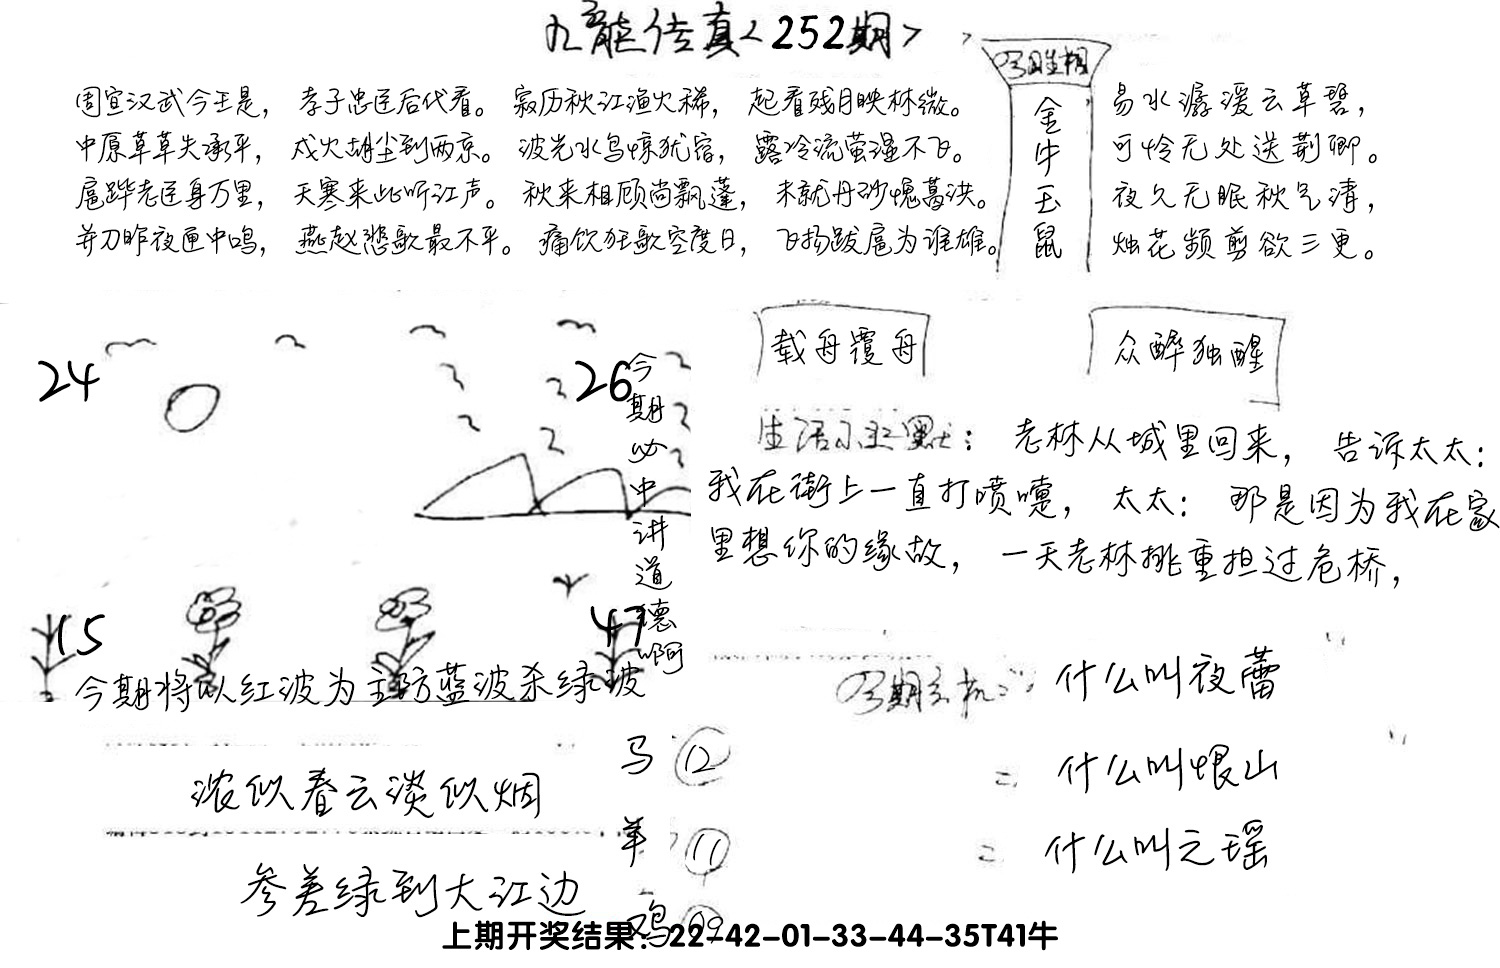 九龍传真<252期>
周宣汉武今王是，孝子忠臣后代看。寂历秋江渔火稀，起看残月映林微。
中原草草失承平，戍火胡尘到两京。波光水鸟惊犹宿，露冷流萤湿不飞。
扈跸老臣身万里，天寒来此听江声。秋来相顾尚飘蓬，未就丹砂愧葛洪。
并刀昨夜匣中鸣，燕赵悲歌最不平。痛饮狂歌空度日，飞扬跋扈为谁雄。
金牛玉鼠
易水潺湲云草碧，
可怜无处送荆卿。
夜久无眠秋气清，
烛花频剪欲三更。
24
26
15
47
今期必中讲道德啊
今期将以红波为主防蓝波杀绿波
载舟覆舟
众醉独醒
生活小幽默：老林从城里回来，告诉太太：
我在街上一直打喷嚏，太太：那是因为我在家
里想你的缘故，一天老林挑重担过危桥，
什么叫夜蕾
什么叫恨山
什么叫之瑶
浓似春云淡似烟
参差绿到大江边
马 12
羊 11
鸡 09
上期开奖结果：22-42-01-33-44-35T41牛